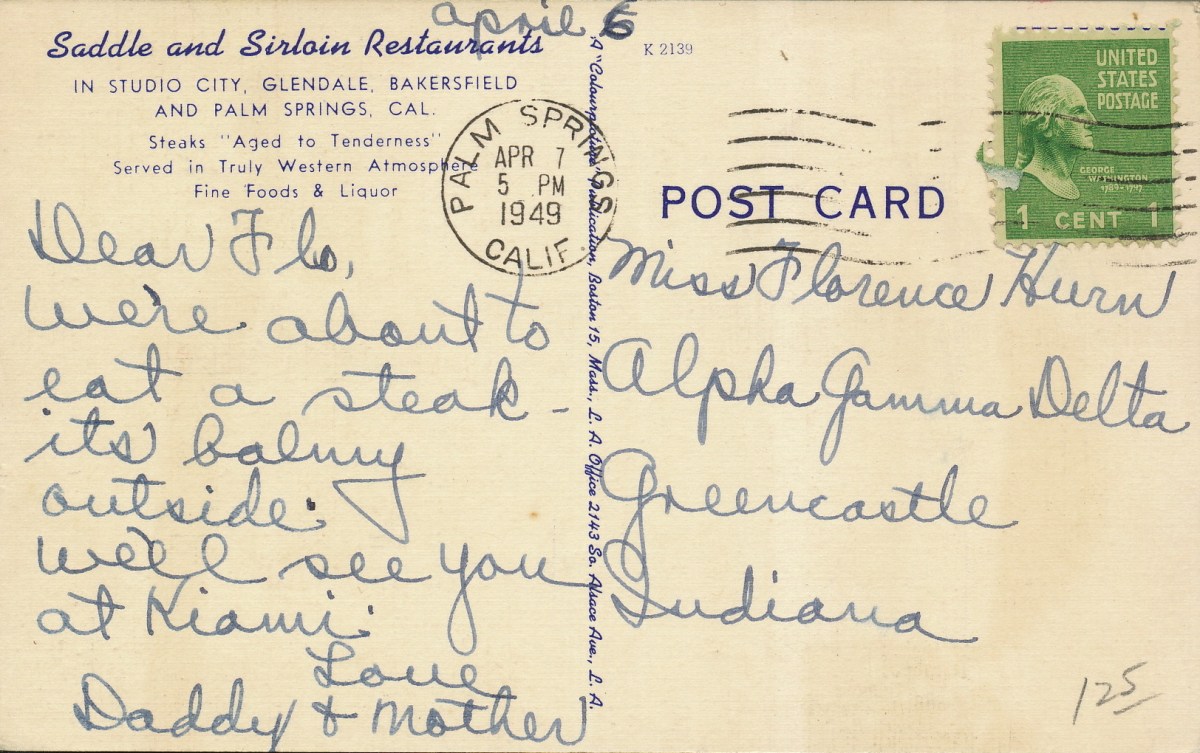 april 6
Saddle and Sirloin Restaurants
IN STUDIO CITY, GLENDALE, BAKERSFIELD
AND PALM SPRINGS, CAL.
Steaks "Aged to Tenderness"
Served in Truly Western Atmosphere
Fine Foods & Liquor
Dear Flo,
We're about to
eat a steak -
its balmy
outside.
We'll see you
at Kiami.
Love
Daddy & Mother
A "Colourpicture" Publication, Boston 15, Mass., L. A. Office 2143 So. Alsace Ave., L. A.
K 2139
PALM SPRINGS
APR 7
5 PM
1949
CALIF.
POST CARD
UNITED
STATES
POSTAGE
GEORGE
WASHINGTON
1789-1797
1 CENT 1
Miss Florence Hurn
Alpha Gamma Delta
Greencastle
Indiana
125